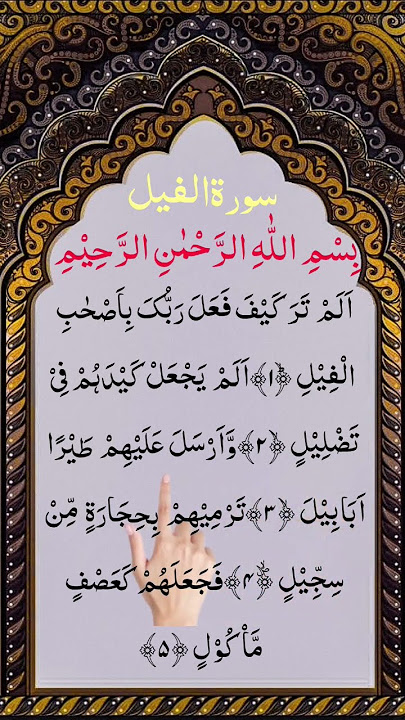 سورة الفیل
بِسْمِ اللّٰهِ الرَّحْمٰنِ الرَّحِیْمِ
اَلَمْ تَرَ كَیْفَ فَعَلَ رَبُّكَ بِاَصْحٰبِ
الْفِیْلِؕ ﴿۱﴾ اَلَمْ یَجْعَلْ كَیْدَهُمْ فِیْ
تَضْلِیْلٍ ﴿۲﴾ وَّاَرْسَلَ عَلَیْهِمْ طَیْرًا
اَبَابِیْلَ ﴿۳﴾ تَرْمِیْهِمْ بِحِجَارَةٍ مِّنْ
سِجِّیْلٍ ﴿۴﴾ فَجَعَلَهُمْ كَعَصْفٍ
مَّاْكُوْلٍ ﴿۵﴾